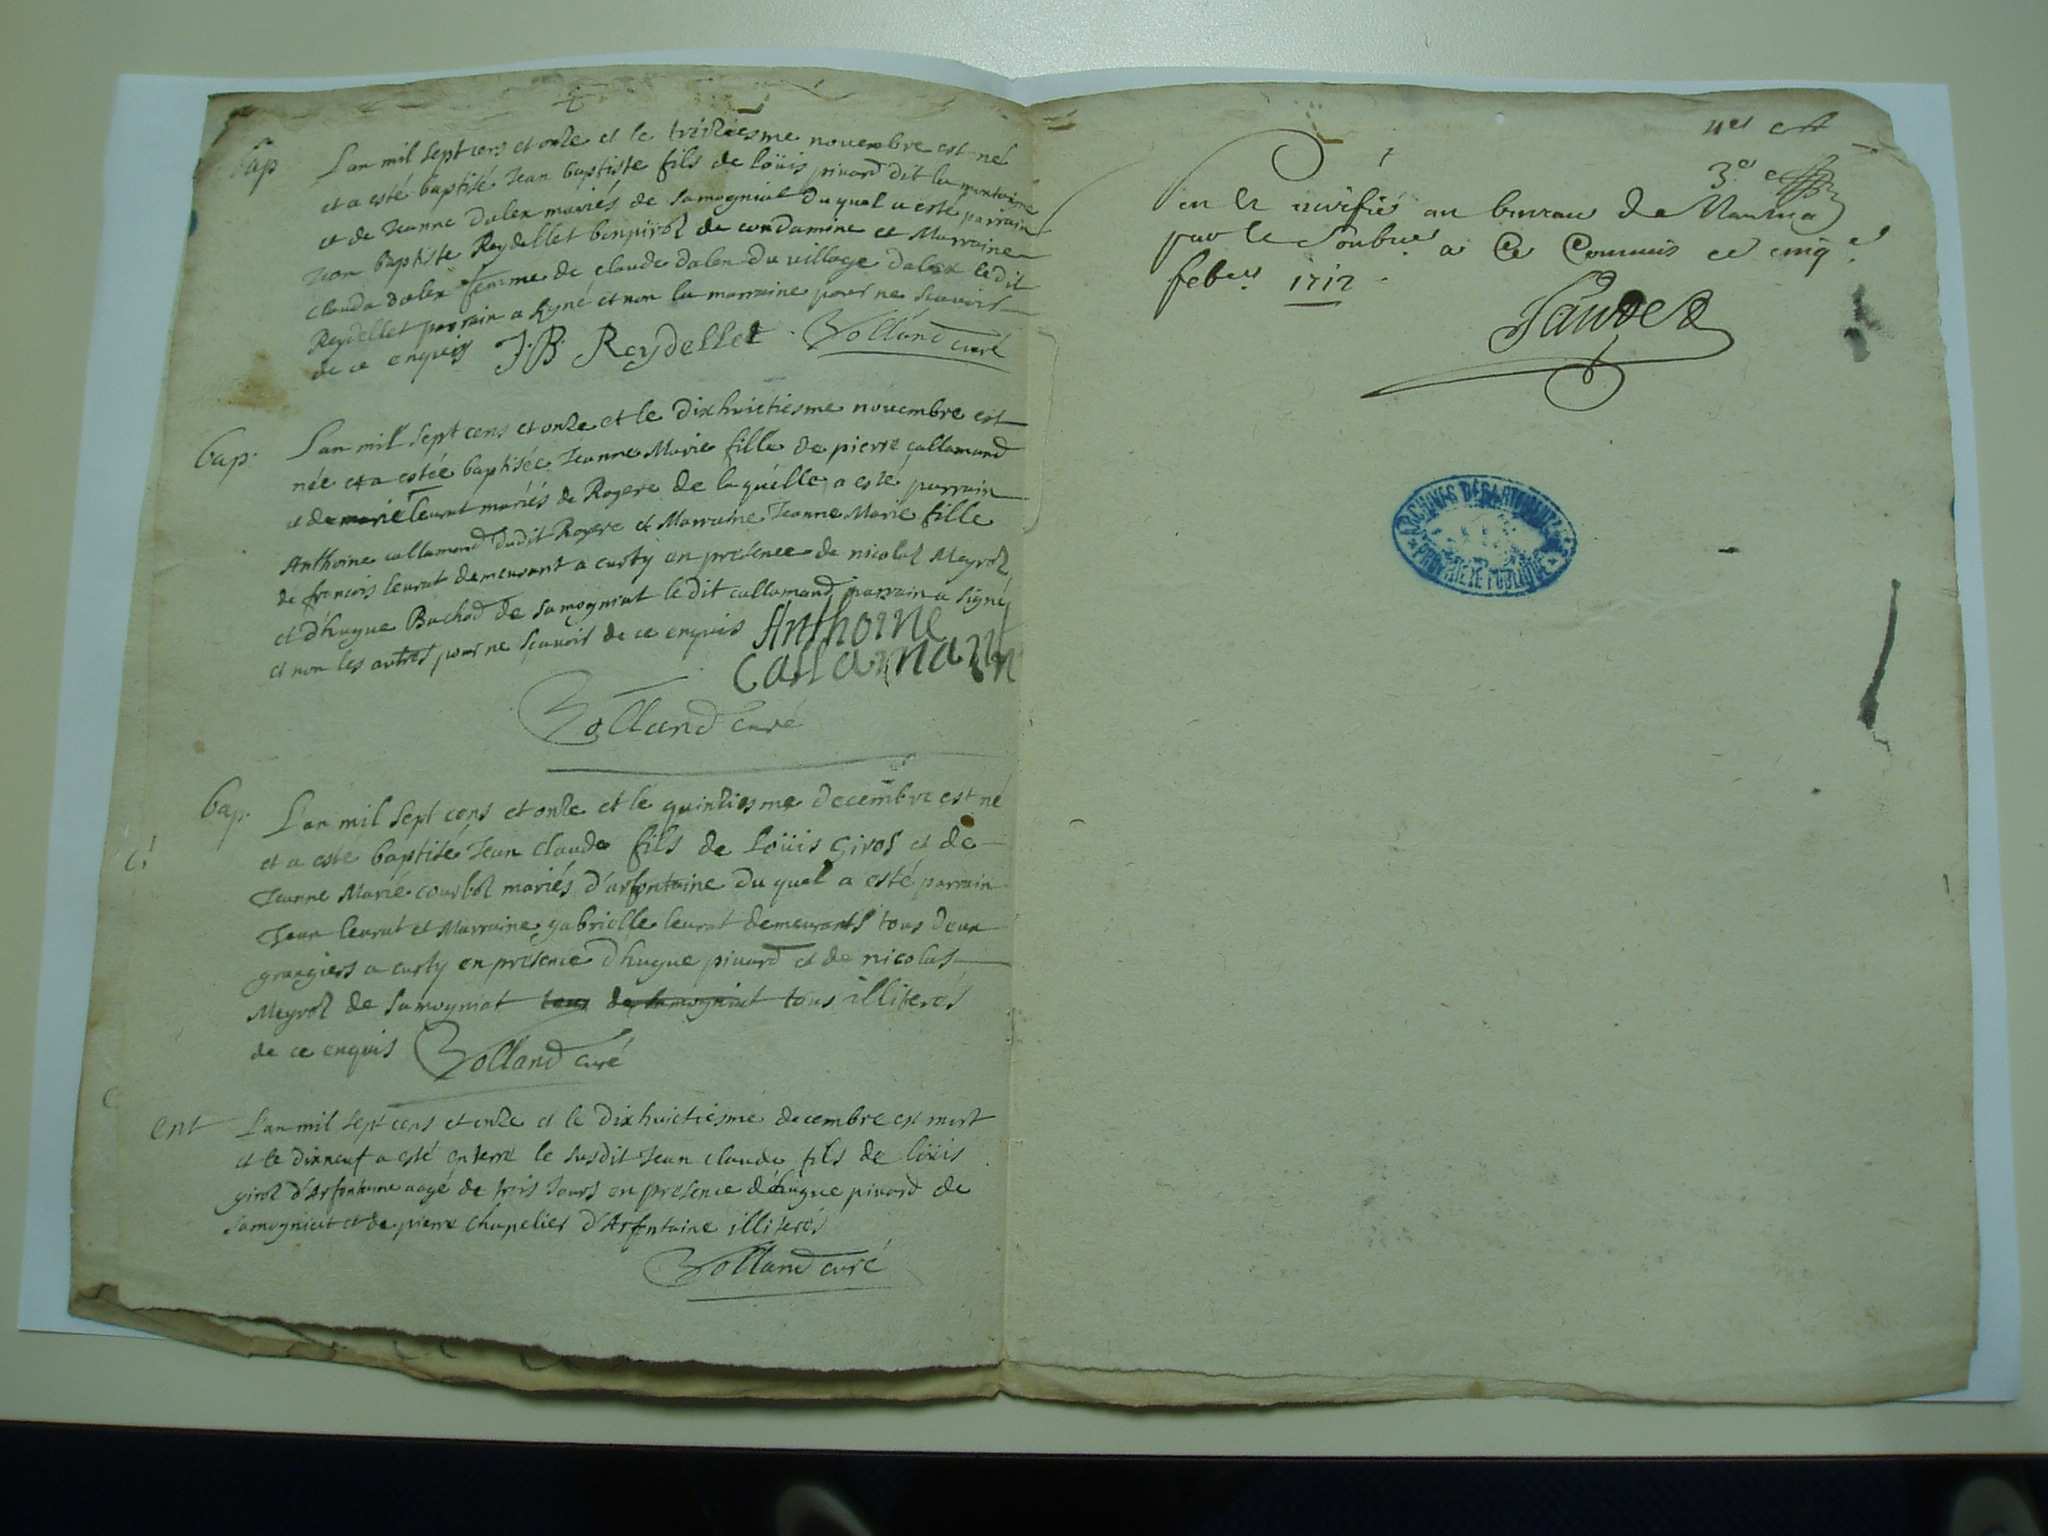 bap
L'an mil sept cens et onze et le treiziesme novembre est né
et a esté baptisé Jean baptiste fils de loüis pivard dit la montaigne
et de Jeanne dalex mariés de Samogniat du quel a esté parrain
Jean baptiste Reydellet de condamine et Marraine
clauda dalex femme de claude dalex du village dalex ledit
Reydellet parrain a signé et non la marraine pour ne scavoir
de ce enquis J. B. Reydellet Rolland curé
bap.
L'an mil sept cens et onze et le dixhuictiesme novembre est
née et a estée baptisée Jeanne Marie fille de pierre callamand
et de marie leurat mariés de Rogere de laquelle a esté parrain
Anthoine callamand dudit Rogere et Marraine Jeanne Marie fille
de francois leurat demeurant a curty en presence de nicolas Meyroz
et d'hugue Buchod de Samogniat ledit callamand parrain a signé
et non les autres pour ne scavoir de ce enquis Anthoine
Callamann
Rolland curé
bap.
L'an mil sept cens et onze et le quinziesme decembre est né
et a esté baptisé Jean claude fils de Loüis Giroz et de
Jeanne Marie courboz mariés d'arfontaine du quel a esté parrain
Jean leurat et Marraine gabrielle leurat demeurants tous deux
grangiers a curty en présence d'hugue pivard et de nicolas
Meyroz de Samogniat tous de samogniat tous illiterés
de ce enquis Rolland curé
ent
L'an mil sept cens et onze et le dixhuictiesme decembre est mort
et le dixneuf a esté enterré le susdit Jean claude fils de loüis
giroz d'Arfontaine aagé de trois jours en presence d'hugue pivard de
Samogniat et de pierre chapelier d'Arfontaine illiterés
Rolland curé
3.e
veu et verifié au bureau de Nantua
par le Soubne a Ce Commis ce cinq e
feber 1712
ARCHIVES DÉPARTEMENTALES
PROPRIÉTÉ PUBLIQUE